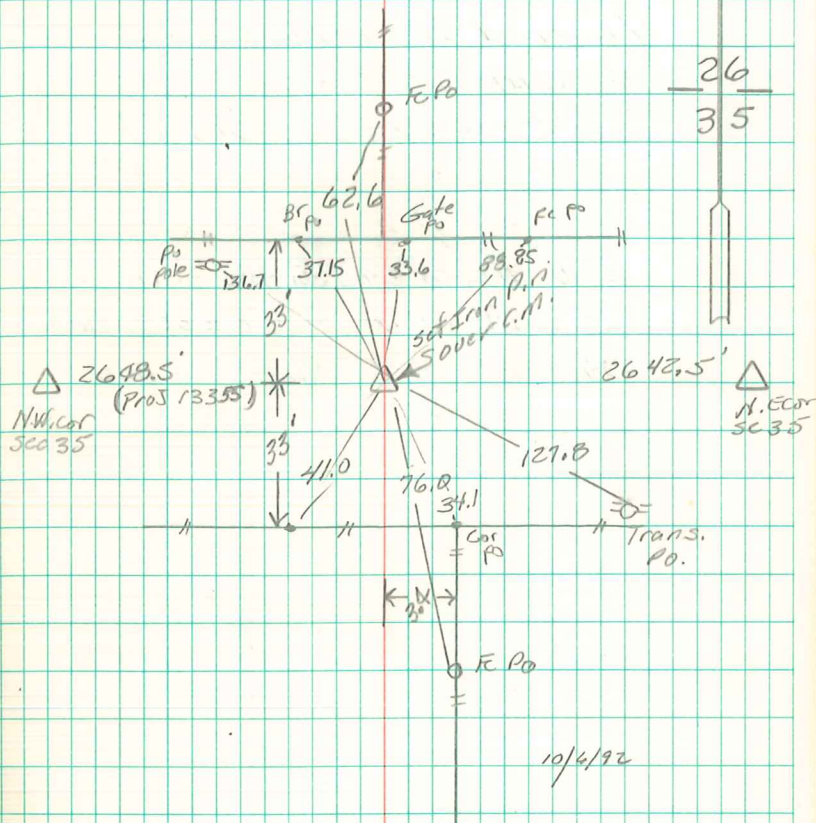 26
35
Fc Po
62.6
Br
po
Gate
po
Fc po
Po
pole
136.7
37.15
33.6
88.85
33'
Set Iron Pin
S over C.M.
2648.5'
(Proj 13355)
2642.5'
N.W.cor
Sec 35
N.E cor
Sc 35
33'
41.0
76.0
127.8
34.1
Cor
po
Trans.
Po.
Fc Po
10/6/92